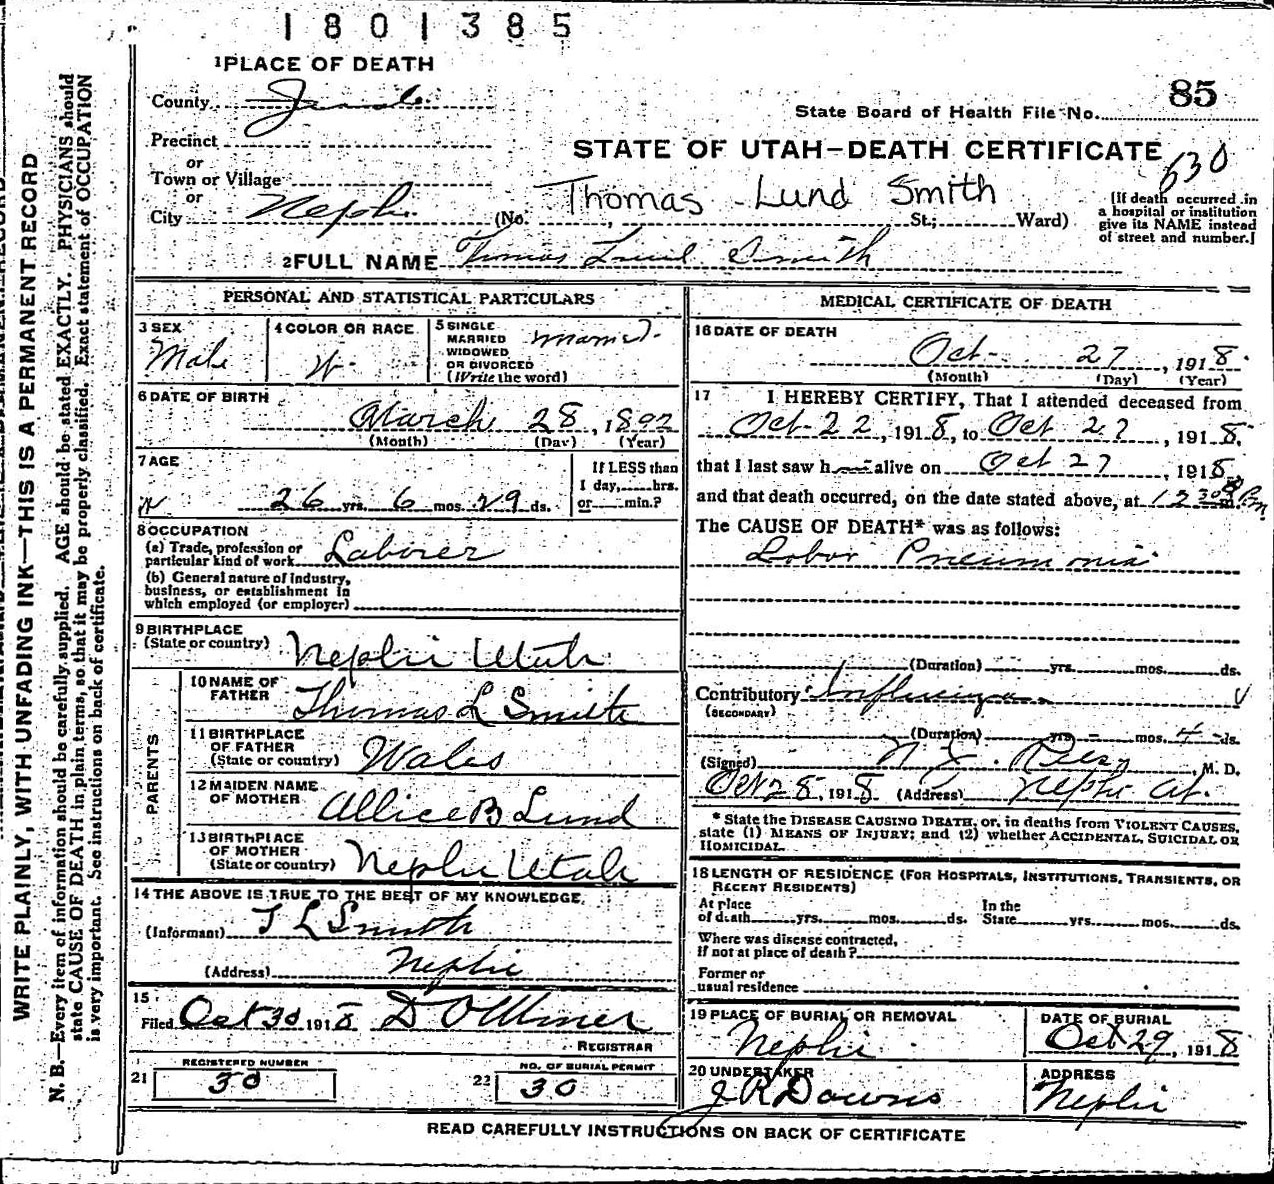 1801385
1 PLACE OF DEATH
County Juab
85
State Board of Health File No.
Precinct
STATE OF UTAH—DEATH CERTIFICATE
630
or
Town or Village
or
Thomas Lund Smith
City Nephi (No. , St.; Ward)
[If death occurred in
a hospital or institution
give its NAME instead
of street and number.]
2 FULL NAME Thomas Lund Smith
PERSONAL AND STATISTICAL PARTICULARS
3 SEX
Male
4 COLOR OR RACE
W
5 SINGLE
MARRIED
WIDOWED
OR DIVORCED
(Write the word)
Married
6 DATE OF BIRTH
March 28, 1892
(Month) (Day) (Year)
7 AGE
26 yrs. 6 mos. 29 ds.
If LESS than
1 day, hrs.
or min.?
8 OCCUPATION
(a) Trade, profession or
particular kind of work Laborer
(b) General nature of industry,
business, or establishment in
which employed (or employer)
9 BIRTHPLACE
(State or country) Nephi Utah
PARENTS
10 NAME OF
FATHER Thomas L Smith
11 BIRTHPLACE
OF FATHER
(State or country) Wales
12 MAIDEN NAME
OF MOTHER Allice B Lund
13 BIRTHPLACE
OF MOTHER
(State or country) Nephi Utah
14 THE ABOVE IS TRUE TO THE BEST OF MY KNOWLEDGE.
(Informant) T L Smith
(Address) Nephi
15
Filed Oct 30 1918
REGISTRAR
REGISTERED NUMBER
21 30
NO. OF BURIAL PERMIT
22 30
MEDICAL CERTIFICATE OF DEATH
16 DATE OF DEATH
Oct 27, 1918.
(Month) (Day) (Year)
17 I HEREBY CERTIFY, That I attended deceased from
Oct-22, 1918, to Oct 27, 1918.
that I last saw h alive on Oct 27, 1918
and that death occurred, on the date stated above, at 12 30 m. Pm
The CAUSE OF DEATH* was as follows:
Lobar Pneumonia
(Duration) yrs. mos. ds.
Contributory Influenza
(SECONDARY)
(Duration) yrs – mos. 4 ds.
(Signed) Rees, M. D.
Oct 28, 1918 (Address) Nephi Ut.
* State the DISEASE CAUSING DEATH, or, in deaths from VIOLENT CAUSES,
state (1) MEANS OF INJURY; and (2) whether ACCIDENTAL, SUICIDAL OR
HOMICIDAL.
18 LENGTH OF RESIDENCE (FOR HOSPITALS, INSTITUTIONS, TRANSIENTS, OR
RECENT RESIDENTS)
At place
of death yrs. mos. ds.
In the
State yrs. mos. ds.
Where was disease contracted,
if not at place of death?
Former or
usual residence
19 PLACE OF BURIAL OR REMOVAL
Nephi
DATE OF BURIAL
Oct 29, 1918
20 UNDERTAKER
J R Downs
ADDRESS
Nephi
READ CAREFULLY INSTRUCTIONS ON BACK OF CERTIFICATE
WRITE PLAINLY, WITH UNFADING INK—THIS IS A PERMANENT RECORD
N. B.—Every item of information should be carefully supplied. AGE should be stated EXACTLY. PHYSICIANS should
state CAUSE OF DEATH in plain terms, so that it may be properly classified. Exact statement of OCCUPATION
is very important. See instructions on back of certificate.